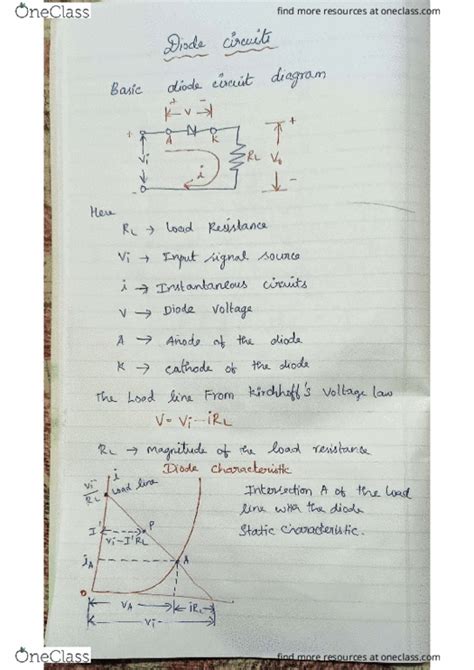 OneClass
find more resources at oneclass.com
Diode circuits
Basic diode circuit diagram
+ V -
+ A K +
Vi i RL Vo
- -
Here
RL → Load Resistance
Vi → Input signal source
i → Instantaneous circuits
V → Diode Voltage
A → Anode of the diode
K → cathode of the diode
The Load line From Kirchhoff's Voltage law
V = Vi - iRL
RL → magnitude of the load resistance
Diode characteristic
i
Vi/RL
Load line
Intersection A of the load
line with the diode
Static characteristic.
I' P
Vi-I'RL
iA A
0
VA iRL
Vi
OneClass
find more resources at oneclass.com